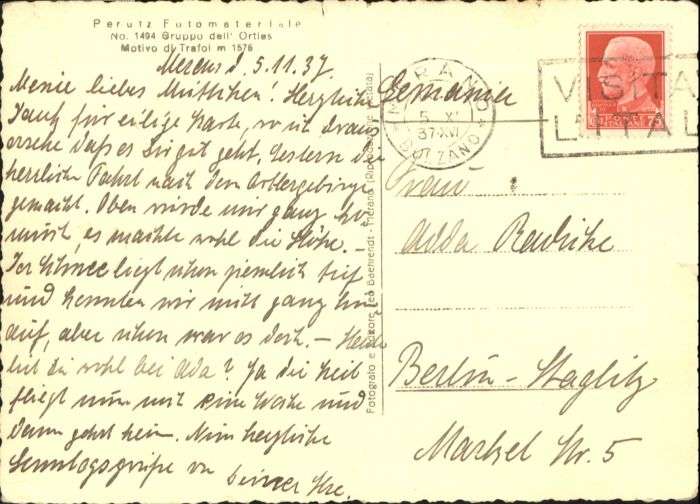 Perutz Fotomateriale
No. 1494 Gruppo dell' Ortles
Motivo di Trafoi m 1576
Meran d. 5.11.37
Meine liebes Muttichen! Herzliche
Dank für eilige Karte, so ist draus
ersehe daß es Dir gut geht, gestern die
herrliche Fahrt nach dem Ortlergebirge
gemacht. Oben wurde mir ganz
es machte wohl die Höhe. –
Der Schnee liegt schon ziemlich tief
und konnten wir nicht ganz hin
auf, aber schon war es doch. – Heute
bist du wohl bei Ada? Ja die Zeit
fliegt nun noch eine Woche und
dann gehts heim. Nun herzliche
Sonntagsgrüße von
Deiner Ilse.
Fotografo e editore Leo Baehrendt - Merano (Riproduzione vietata)
Germanien
MERANO
5. XI
37-XVI
BOLZANO
VISITA
L'ITAL
75
Frau
Adda Radicke
Berlin – Steglitz
Markel Str. 5